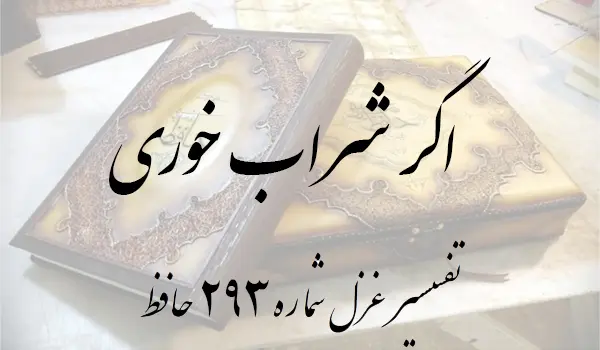 اگر شراب خوری
تفسیر غزل شماره ۲۹۳ حافظ